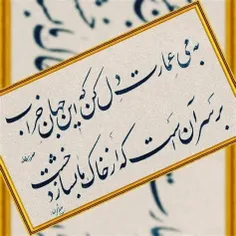 به می عمارت دل کن که این جهان خراب
بر سر آن است که از خاک ما بسازد خشت